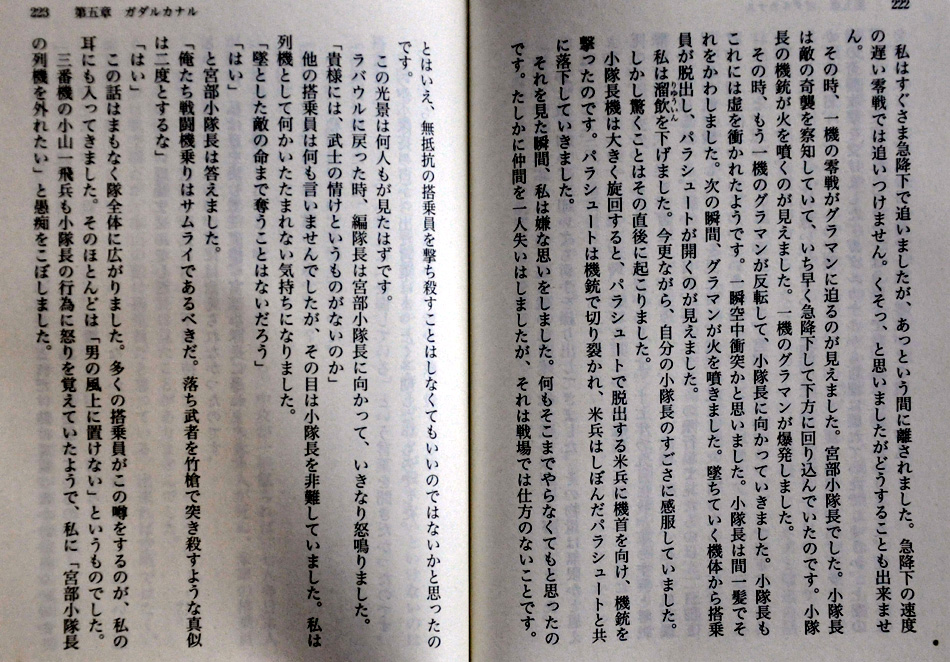 222
私はすぐさま急降下で追いましたが、あっという間に離されました。急降下の速度
の遅い零戦では追いつけません。くそっ、と思いましたがどうすることも出来ませ
ん。
その時、一機の零戦がグラマンに迫るのが見えました。宮部小隊長でした。小隊長
は敵の奇襲を察知していて、いち早く急降下して下方に回り込んでいたのです。小隊
長の機銃が火を噴くのが見えました。一機のグラマンが爆発しました。
その時、もう一機のグラマンが反転して、小隊長に向かっていきました。小隊長も
これには虚を衝かれたようです。一瞬空中衝突かと思いました。小隊長は間一髪でそ
れをかわしました。次の瞬間、グラマンが火を噴きました。墜ちていく機体から搭乗
員が脱出し、パラシュートが開くのが見えました。
私は溜飲を下げました。今更ながら、自分の小隊長のすごさに感服していました。
りゅういん
しかし驚くことはその直後に起こりました。
小隊長機は大きく旋回すると、パラシュートで脱出する米兵に機首を向け、機銃を
撃ったのです。パラシュートは機銃で切り裂かれ、米兵はしぼんだパラシュートと共
に落下していきました。
それを見た瞬間、私は嫌な思いをしました。何もそこまでやらなくてもと思ったの
です。たしかに仲間を一人失いはしましたが、それは戦場では仕方のないことです。
223 第五章 ガダルカナル
とはいえ、無抵抗の搭乗員を撃ち殺すことはしなくてもいいのではないかと思ったの
です。
この光景は何人もが見たはずです。
ラバウルに戻った時、編隊長は宮部小隊長に向かって、いきなり怒鳴りました。
「貴様には、武士の情けというものがないのか」
他の搭乗員は何も言いませんでしたが、その目は小隊長を非難していました。私は
列機として何かいたたまれない気持ちになりました。
「墜とした敵の命まで奪うことはないだろう」
「はい」
と宮部小隊長は答えました。
「俺たち戦闘機乗りはサムライであるべきだ。落ち武者を竹槍で突き殺すような真似
は二度とするな」
「はい」
この話はまもなく隊全体に広がりました。多くの搭乗員がこの噂をするのが、私の
耳にも入ってきました。そのほとんどは「男の風上に置けない」というものでした。
三番機の小山一飛兵も小隊長の行為に怒りを覚えていたようで、私に「宮部小隊長
の列機を外れたい」と愚痴をこぼしました。